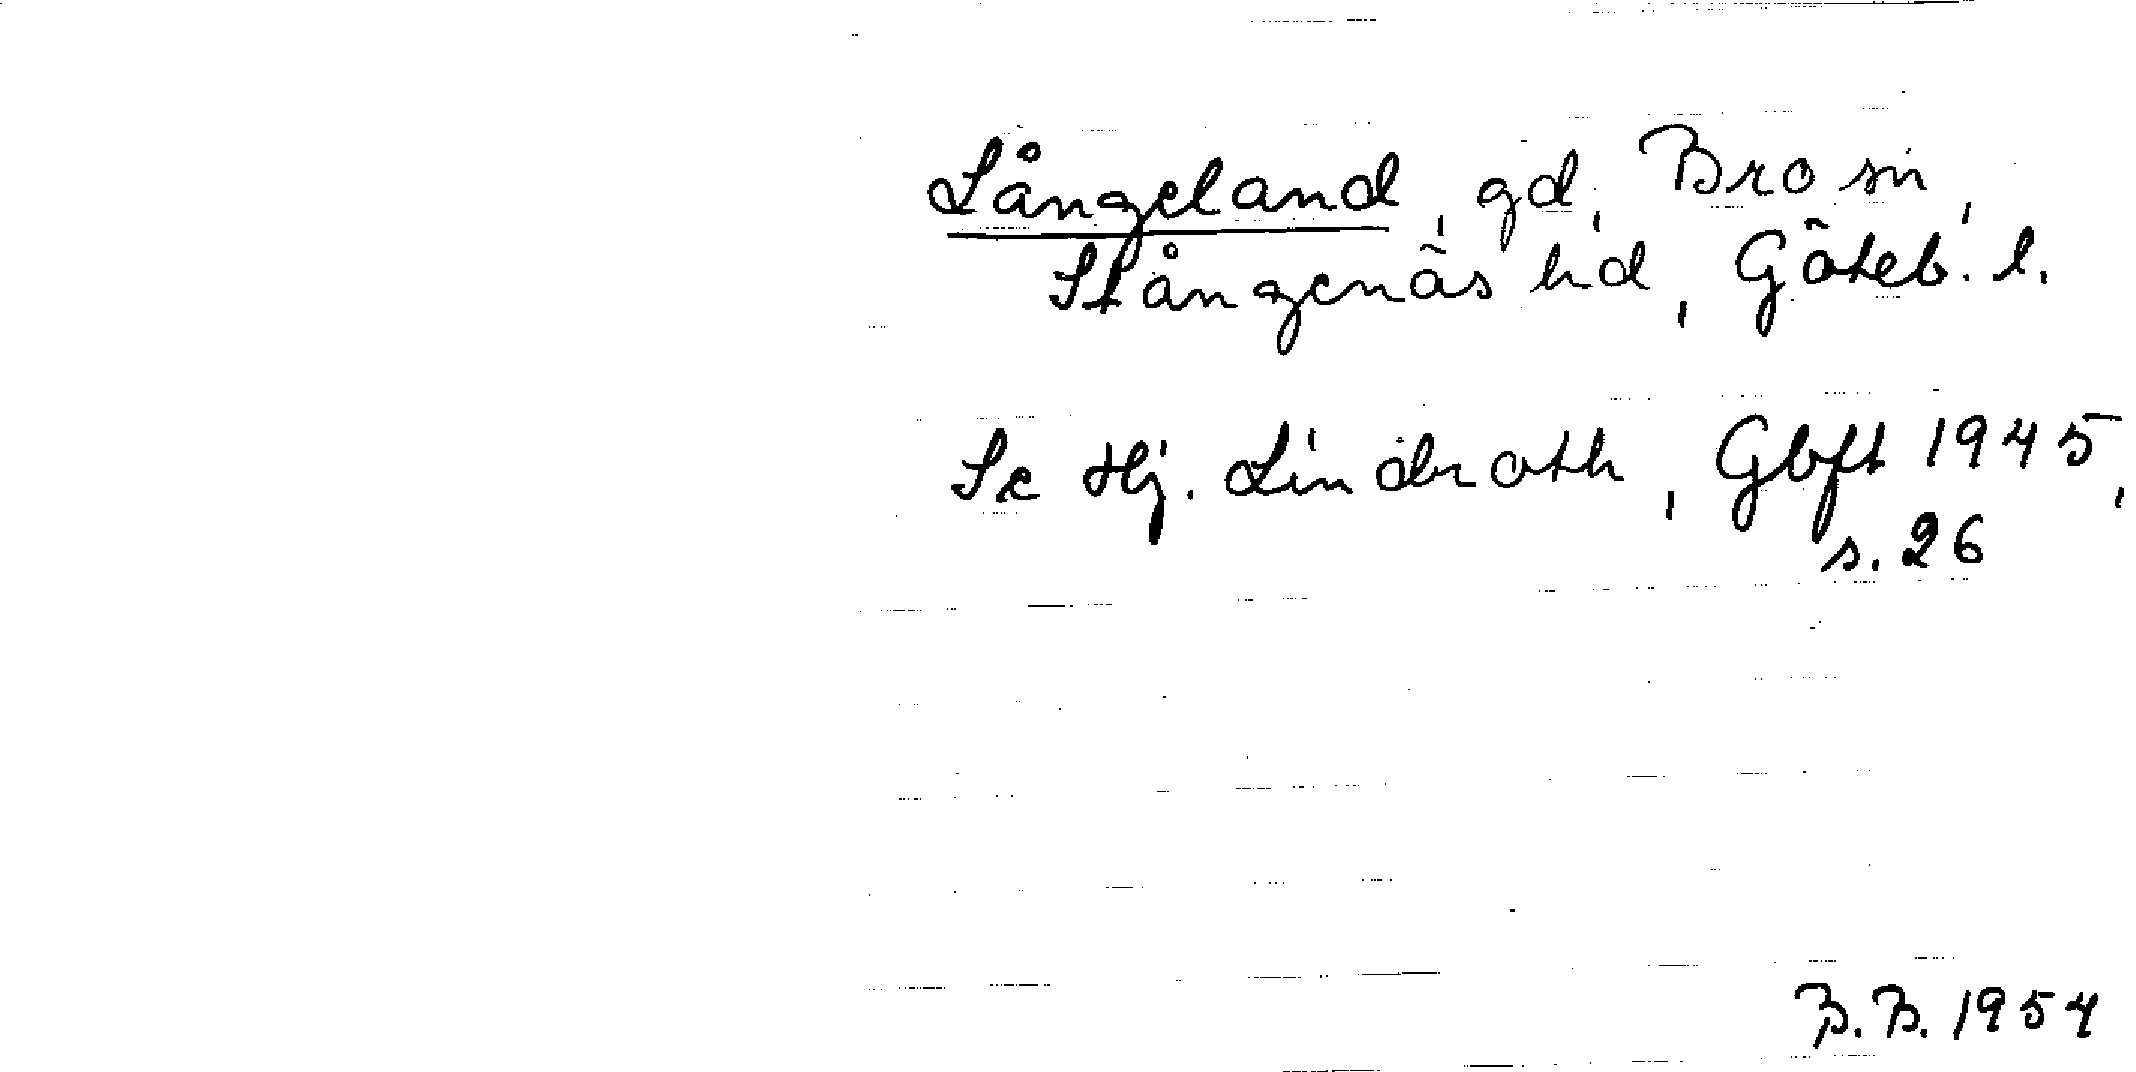 Långeland, gd, Bro sn,
Stångenäs hd, Göteb. l.
Se Hj. Lindroth, Gbft 1945,
s. 26
B.B. 1954